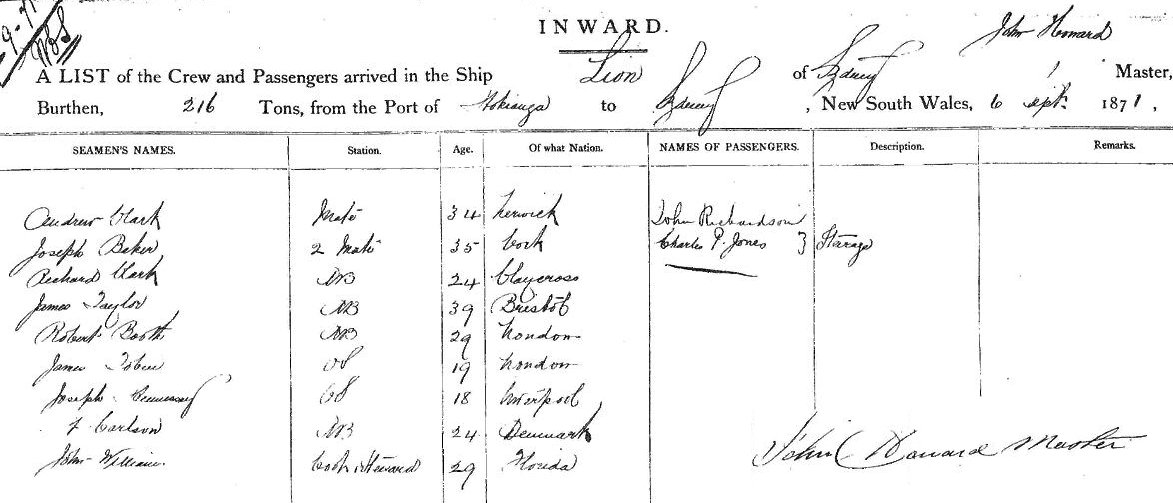 9-71
INWARD.
John Howard
A LIST of the Crew and Passengers arrived in the Ship Lion of Sydney Master,
Burthen, 216 Tons, from the Port of Hokianga to Sydney , New South Wales, 6 Sept. 1871,
SEAMEN'S NAMES. Station. Age. Of what Nation. NAMES OF PASSENGERS. Description. Remarks.
Andrew Clark Mate 34 Lerwick John Richardson
Joseph Baker 2 Mate 35 Cork Charles P. Jones } Steerage
Richard Clark AB 24 Claycross
James Taylor AB 39 Bristol
Robert Booth AB 29 London
James Tobin OS 19 London
Joseph OS 18 Liverpool
Carlson AB 24 Denmark
John William Cook & Steward 29 Florida
John Howard Master